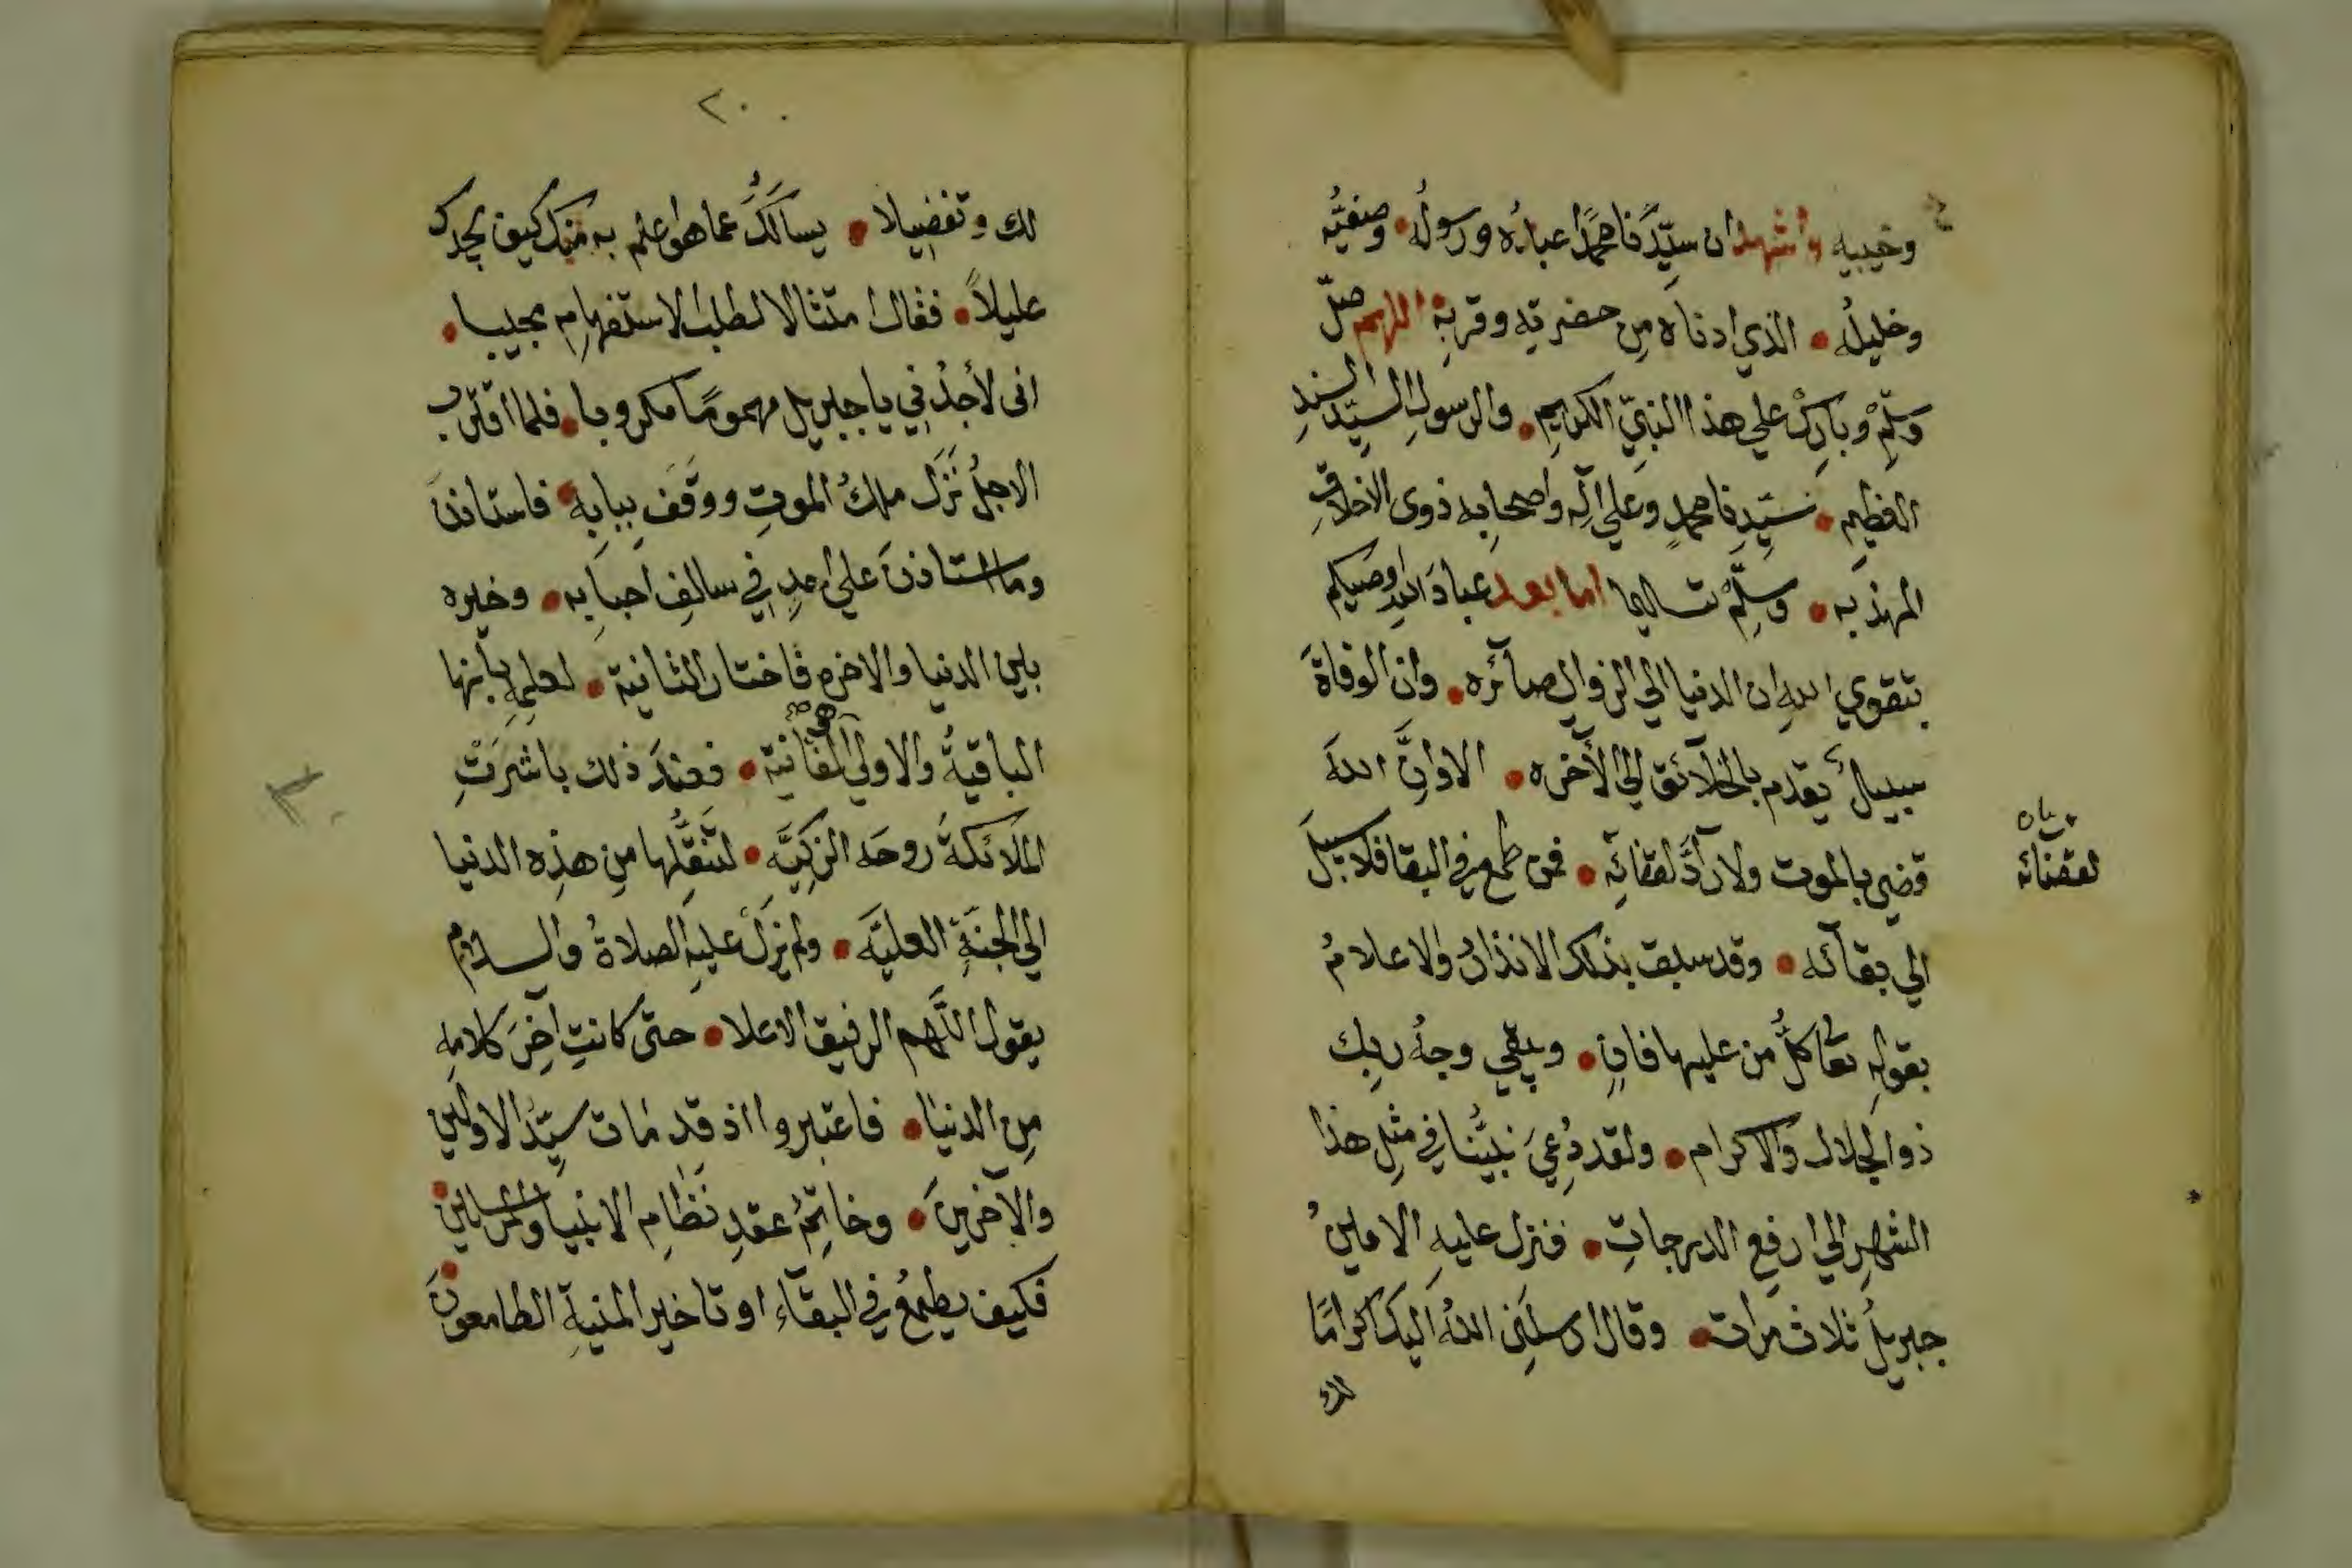 وخيبيه واشهد ان سيِّدَنا محمدًا عبدُه ورسولُه • وصفيُّه
وخليلُه • الذي ادناه مِن حضرتِه وقربِهِ اللهم صلّ
وسلّمْ وبارِكْ علي هذا النبيِّ الكريمِ • والرسولِ السيّدِ السندِ
العظيمِ • سَيّدِنا محمدٍ وعلي آلِه واصحابِه ذوى الاخلاقِ
المهذبه • وسلِّمْ تسليما اما بعد عبادَ اللهِ اوصيكم
بتقوي اللهِ ان الدنيا الي الزوالِ صآئره • وان الوفاةَ
سبيلٌ يقدم بالخلآئق الي الآخره • الا وانَّ اللهَ
قضي بالموت ولا رآدَّ لقضائِه • فمن طمع في البقا فلا سبيلَ
الي بقآئه • وقد سبق بذلك الانذارُ والاعلامُ
بقولِه تعا كلُّ من عليها فانٍ • ويبقي وجهُ ربِك
ذو الجلال والاكرام • ولقد دُعِيَ نبيُّنا في مثلِ هذا
الشهرِ الي ارفعِ الدرجاتِ • فنزل عليهِ الامينُ
جبريلُ ثلاث مرات • وقال ارسلَنِى اللهُ اليك اكرامًا
لك
لقضائه
٢٠
لك وتفضيلا • يسالُكَ عما هو اعلم به منك كيف تجدك
عليلاً • فقال امتثالا لطلب الاستفهامِ مجيبا •
انى لأجدُنِي يا جبريل مهمومًا مكروبا • فلما اقترب
الاجلُ نَزَل ملكُ الموتِ ووقَفَ ببابِه • فاستاذنَ
وما استاذنَ علي احدٍ في سالفِ احبابِه • وخيره
بين الدنيا والاخره فاختار الثانية • لعلمِهِ بأنها
الباقيةُ والاولي هي الفانية • فعندَ ذلك باشَرَتْ
الملآئكةُ روحَه الزكِيَّه • لتنقُّلِها مِن هذِه الدنيا
الي الجنةِ العليَّه • ولم يزلْ عليهِ الصلاةُ والسلام
يقول اللَّهم الرفيق الاعلا • حتى كانت آخِرَ كلامِهِ
مِن الدنيا • فاعتبروا اذ قد مات سيِّدُ الاولين
والآخرينَ • وخاتِمُ عقدِ نَظَامِ الانبيا والمرسلين •
فكيف يطمعُ في البقآءِ او تاخير المنيةِ الطامعونَ •